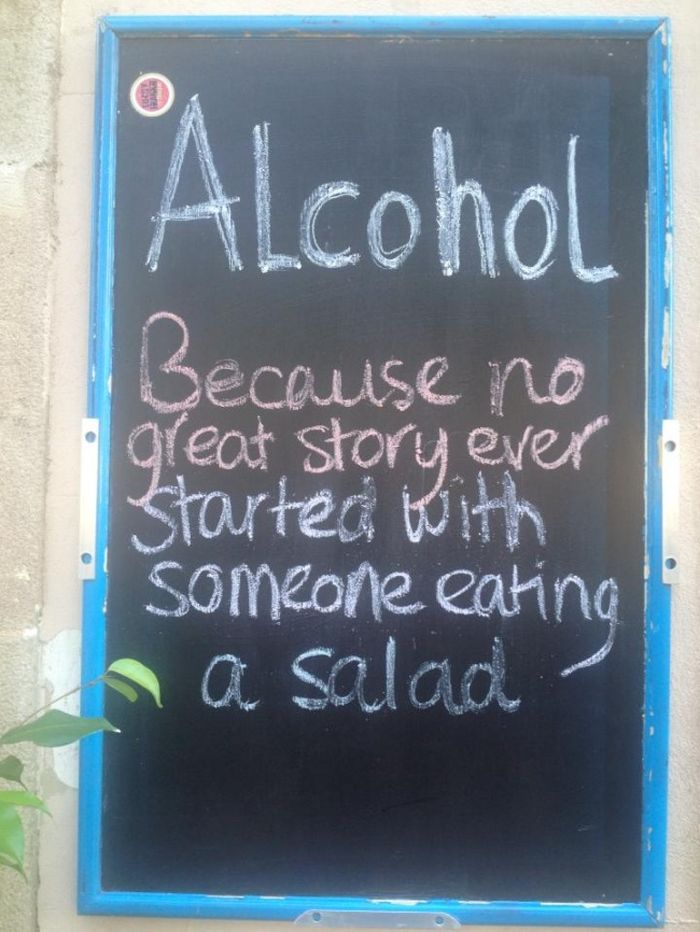 ALcohoL
Because no
great story ever
started with
someone eating
a salad